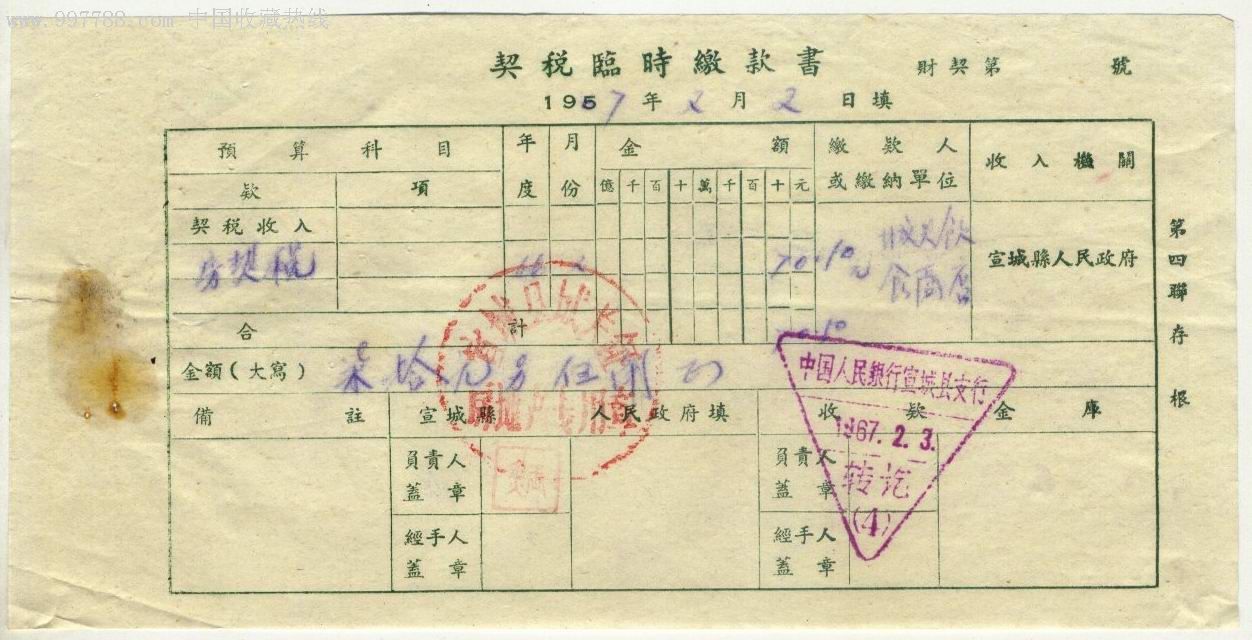 www.997788.com 中国收藏热线
契税臨時繳款書
財契第 號
1967年2月2日填
預算科目 年度 月份 金額 繳款人或繳納單位 收入機關
款 項 億千百十萬千百十元
契税收入
房契税 70.50元 城关飲食商店 宣城縣人民政府
合計
金額(大寫) 柒拾元
備註 宣城縣 人民政府填 收款金庫
負責人蓋章 負責人蓋章
經手人蓋章 經手人蓋章
第四聯存根
房地产专用章
中国人民銀行宣城县支行
1967.2.3.
转讫
(4)